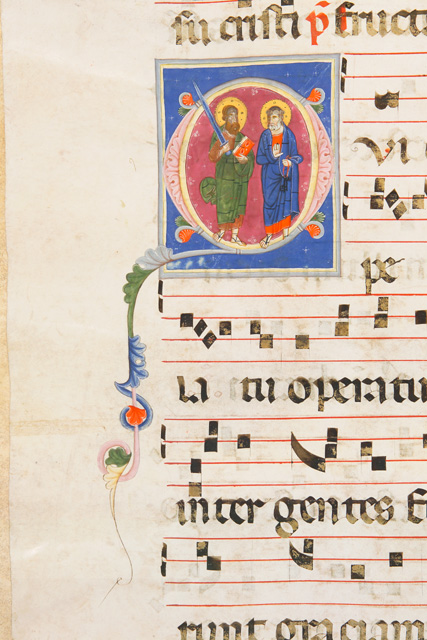 su cristi p̃ Fructu
QVI
pe
la tu operatu
inter gentes Et
runt graciam